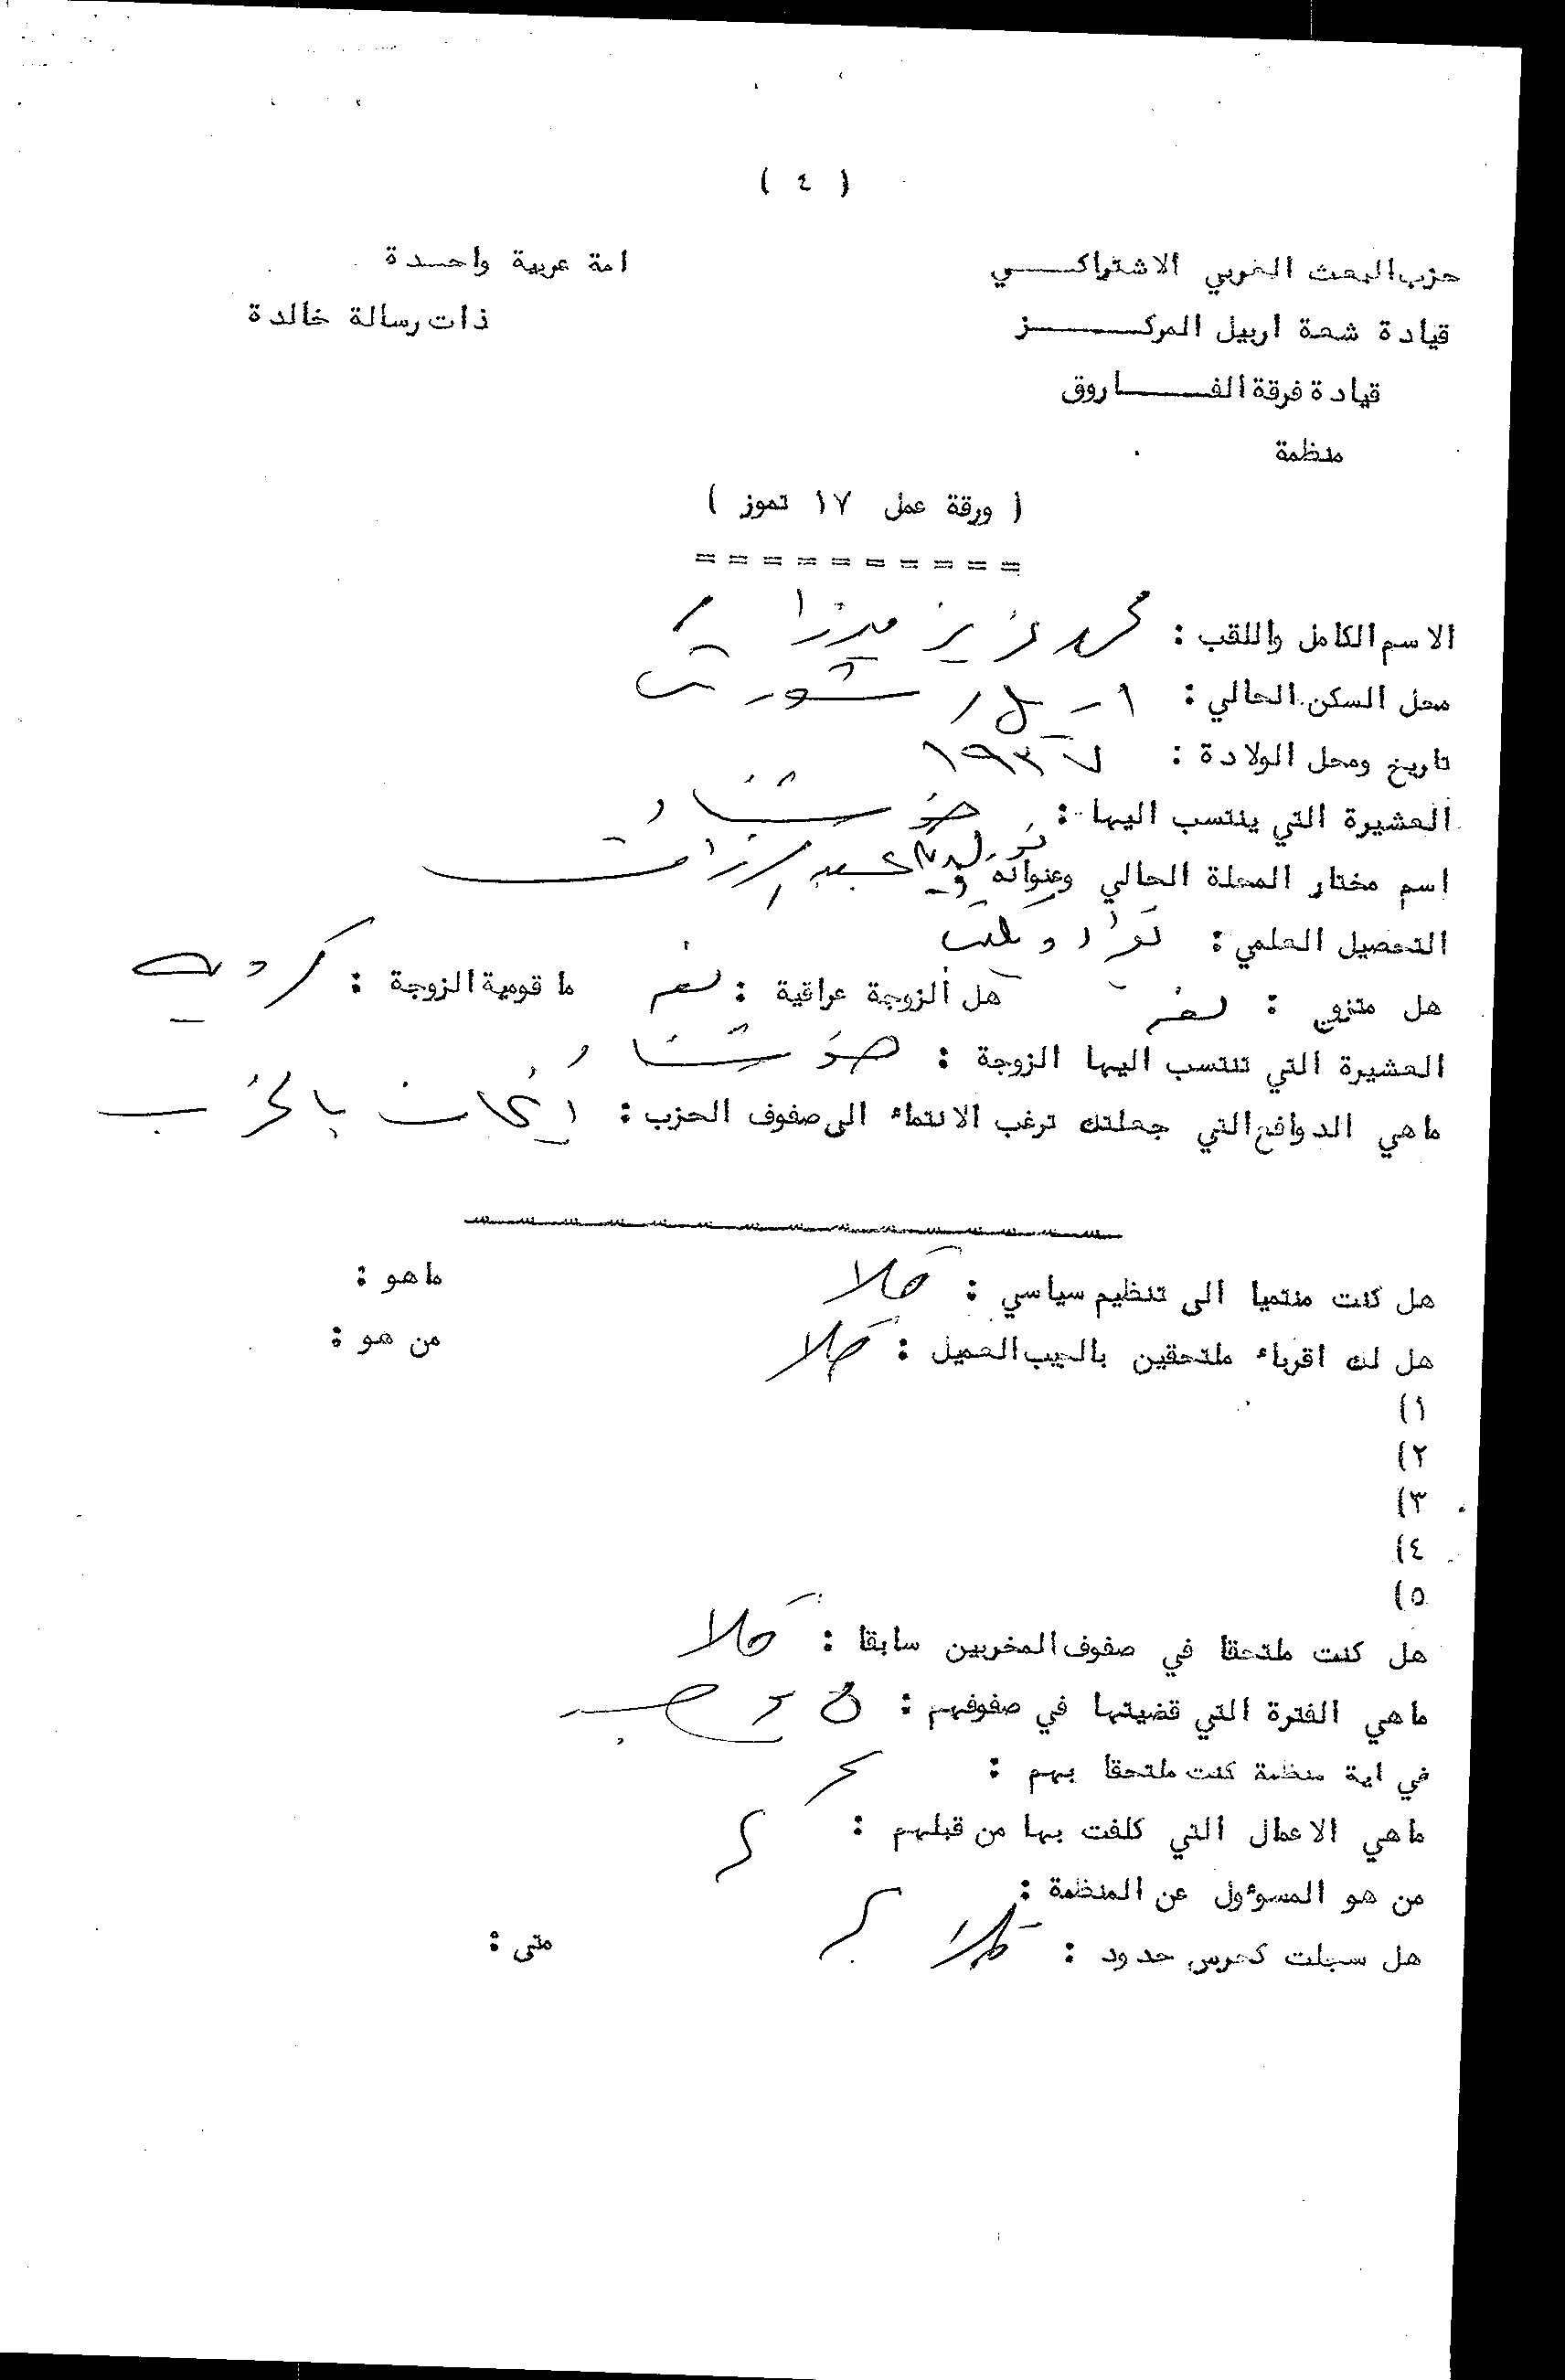 ( ٤ )
حزب البعث العربي الاشتراكي
امة عربية واحدة
قيادة شعبة اربيل المركز
ذات رسالة خالدة
قيادة فرقة الفاروق
منظمة
( ورقة عمل ١٧ تموز )
==========
الاسم الكامل واللقب : محمد عزيز ميرزا
محل السكن الحالي : اربيل / شورش
تاريخ ومحل الولادة : ١٩٣٧
العشيرة التي ينتسب اليها : خوشناو
اسم مختار المحلة الحالي وعنوانه عبد الرزاق
التحصيل العلمي : يقرأ ويكتب
هل متزوج : نعم هل الزوجة عراقية : نعم ما قومية الزوجة : كردية
العشيرة التي تنتسب اليها الزوجة : خوشناو
ماهي الدوافع التي جعلتك ترغب الانتماء الى صفوف الحزب : ايمان بالحزب
هل كنت منتميا الى تنظيم سياسي : كلا ماهو :
هل لك اقرباء ملتحقين بالجيب العميل : كلا من هو :
١)
٢)
٣)
٤)
٥)
هل كنت ملتحقا في صفوف المخربين سابقا : كلا
ماهي الفترة التي قضيتها في صفوفهم :
في اية منظمة كنت ملتحقا بهم :
ماهي الاعمال التي كلفت بها من قبلهم :
من هو المسوءول عن المنظمة :
هل سجلت كحرس حدود : كلا متى :